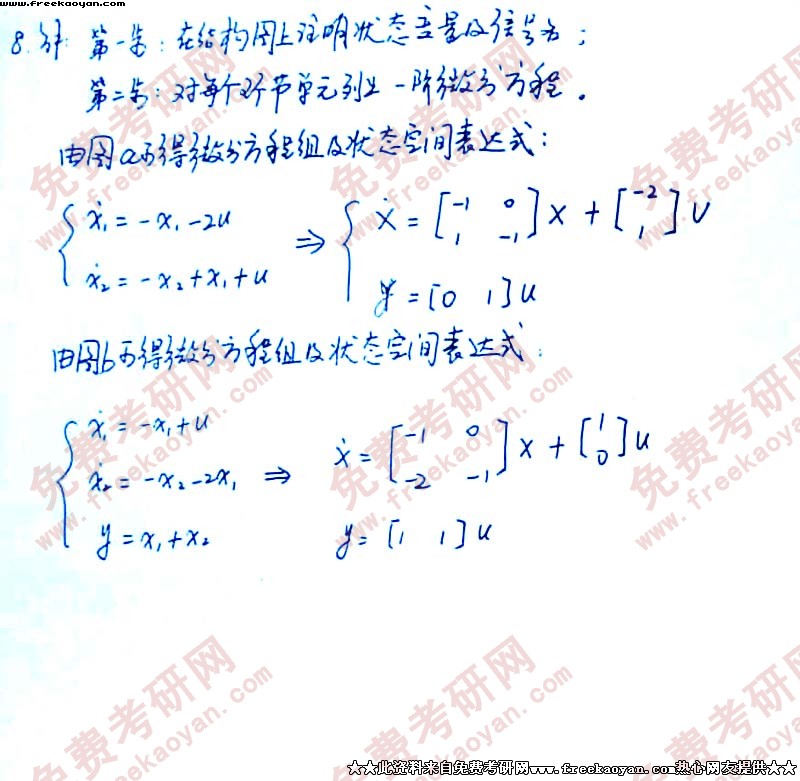 www.freekaoyan.com
8. 解: 第一步: 在结构图上注明状态变量及信号为;
第二步: 对每个环节单元列出一阶微分方程。
由图a可得微分方程组及状态空间表达式:
{ ẋ₁ = -x₁ - 2u ⇒ { ẋ = [-1 0; 1 -1] x + [-2; 1] U
ẋ₂ = -x₂ + x₁ + u y = [0 1] u
由图b可得微分方程组及状态空间表达式:
{ ẋ₁ = -x₁ + u
ẋ₂ = -x₂ - 2x₁ ⇒ ẋ = [-1 0; -2 -1] x + [1; 0] u
y = x₁ + x₂ y = [1 1] u
免费考研网
www.freekaoyan.com
★★此资料来自免费考研网www.freekaoyan.com热心网友提供★★